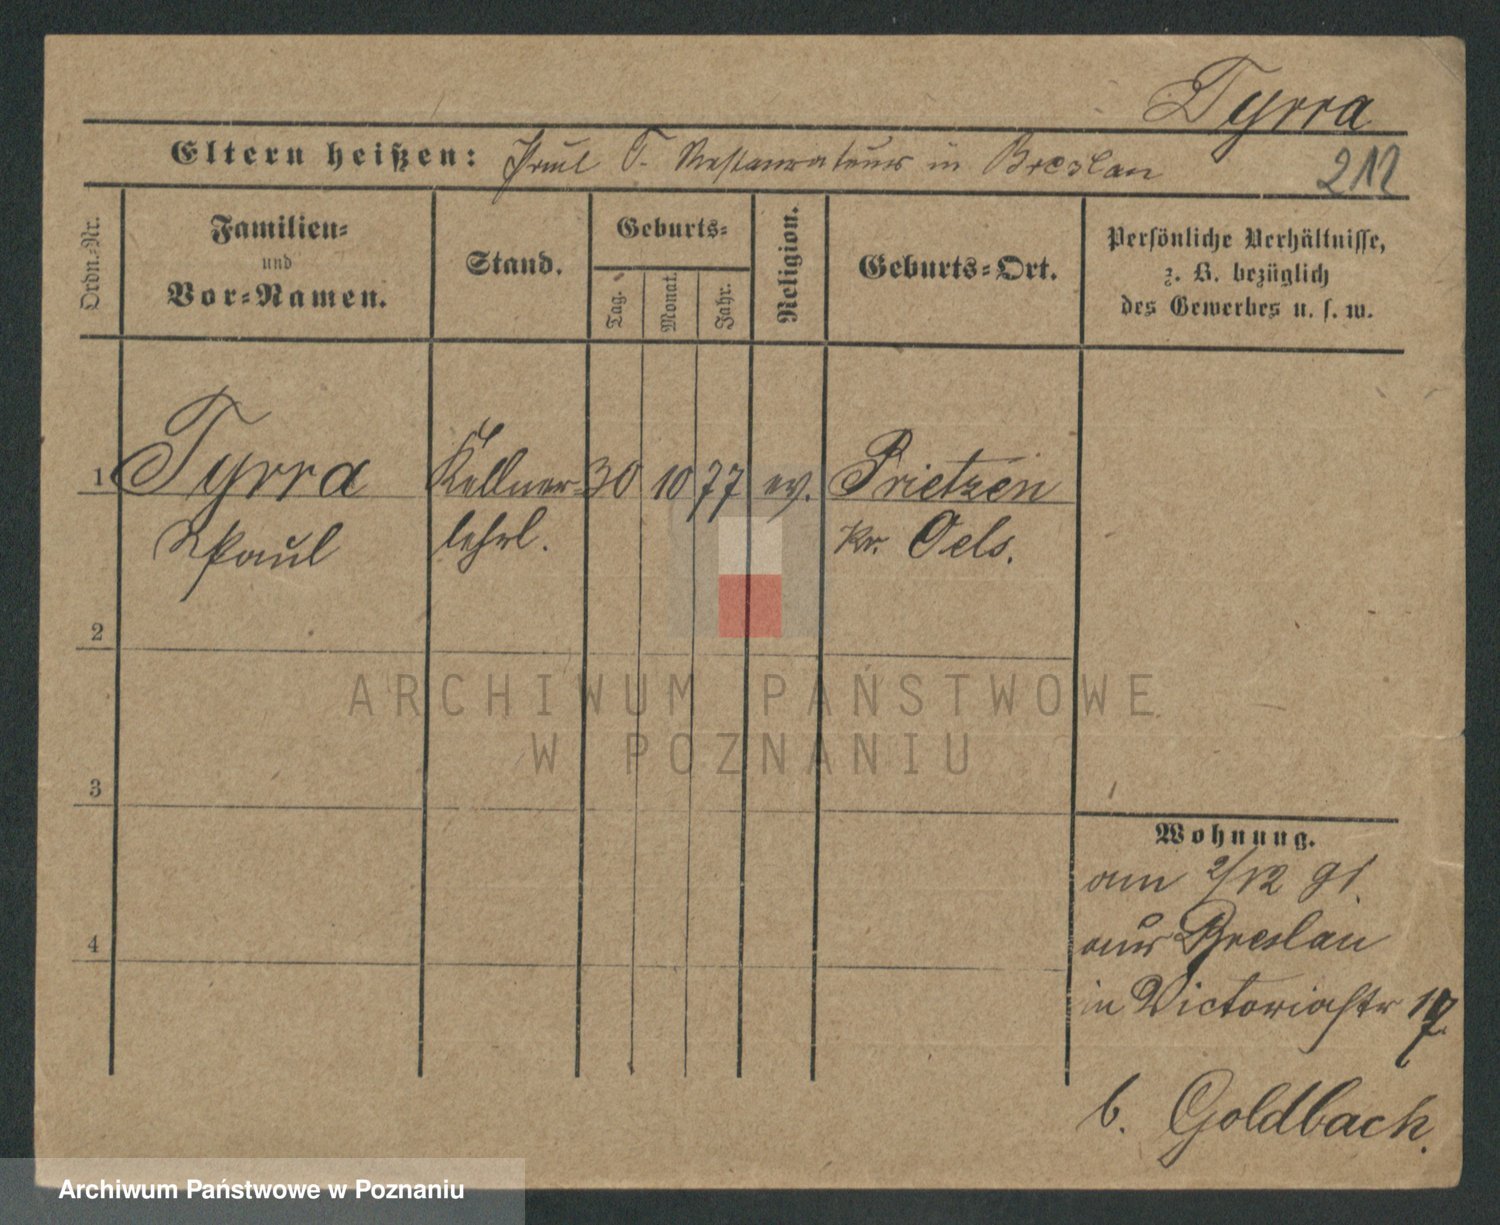 Tyrra
Eltern heißen: Paul T. Restaurateur in Breslau
212
Ordn.-Nr.
Familien-
und
Vor-Namen.
Stand.
Geburts-
Tag.
Monat.
Jahr.
Religion.
Geburts-Ort.
Persönliche Verhältnisse,
z. B. bezüglich
des Gewerbes u. s. w.
1 Tyrra Kellner- 30 10 77 ev. Prietzen
Paul lehrl. Kr. Oels.
2
ARCHIWUM PAŃSTWOWE
W POZNANIU
3
Wohnung.
am 2/12 91.
aus Breslau
4
in Victoriastr 17
b. Goldbach.
Archiwum Państwowe w Poznaniu